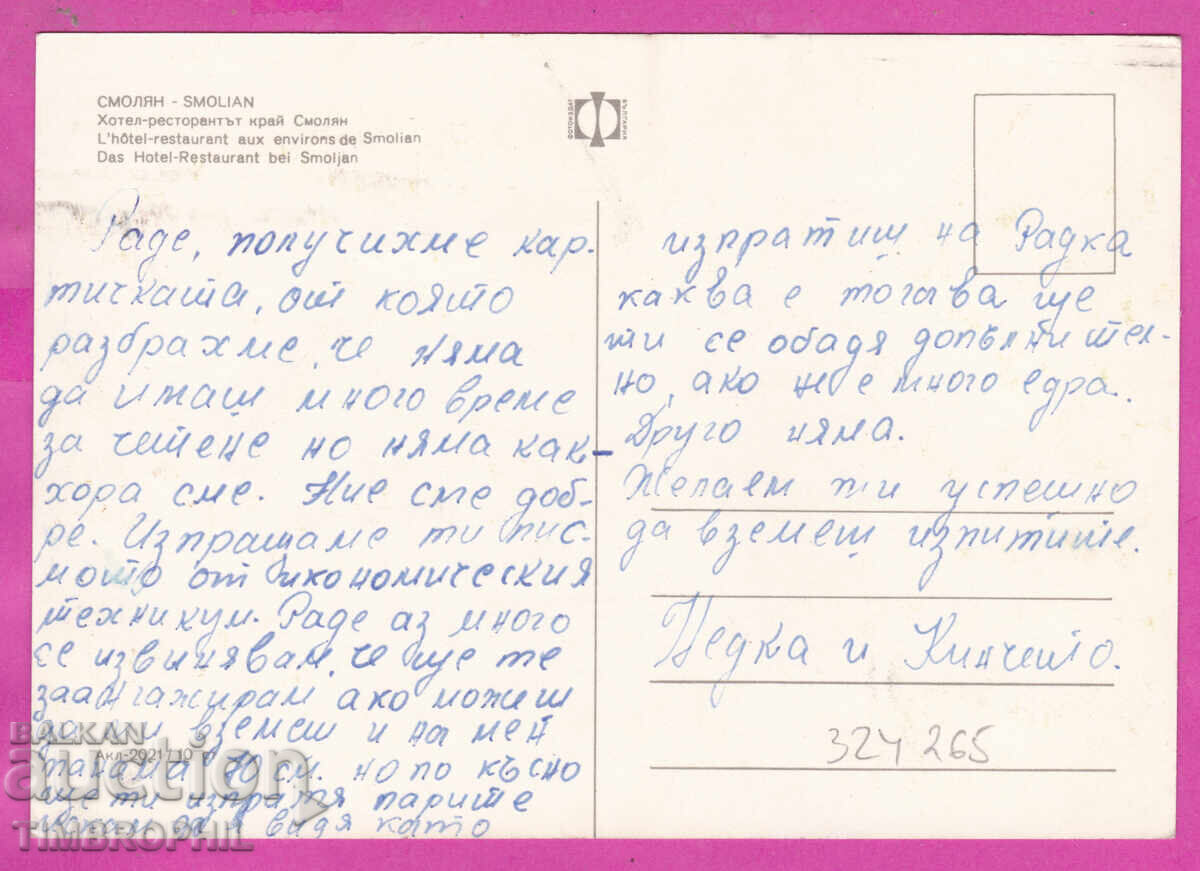 СМОЛЯН - SMOLIAN
Хотел-ресторантът край Смолян
L'hôtel-restaurant aux environs de Smolian
Das Hotel-Restaurant bei Smoljan
ФОТОИЗДАТ
БЪЛГАРИЯ
Раде, получихме кар-
тичката, от която
разбрахме, че няма
да имаш много време
за четене но няма как
хора сме. Ние сме доб-
ре. Изпращаме ти пис-
мото от икономическия
техникум. Раде аз много
се извинявам, че ще те
заангажирам ако можеш
да ми вземеш и на мен
Акл-2021/10
70 см. но по късно
ще ти изпратя парите
искам да я видя като
изпратиш на Радка
каква е тогава ще
ти се обадя допълнител-
но, ако не е много едра.
Друго няма.
Желаем ти успешно
да вземеш изпитите.
Недка и Кинчето.
324265
BALKAN
auction
TIMBROPHIL